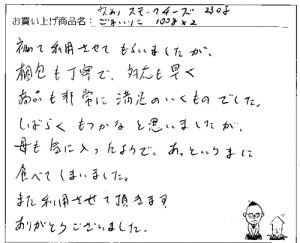 スモークチーズ 230g
お買い上げ商品名: ごまいりこ 100g×2
初めて利用させてもらいましたが、
梱包も丁寧で、対応も早く
商品も非常に満足のいくものでした。
しばらくもつかなと思いましたが、
母も気に入ったようで、あっというまに
食べてしまいました。
また利用させて頂きます
ありがとうございました。